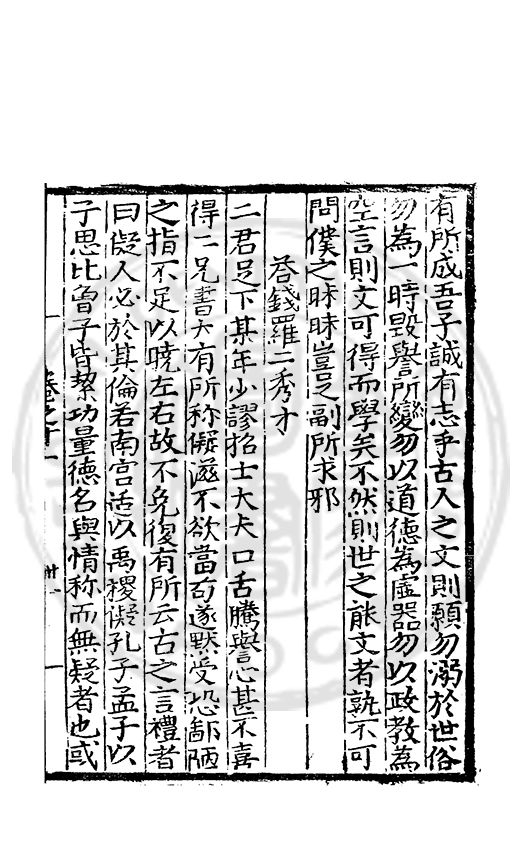 有所成吾子誠有志乎古人之文則願勿溺於世俗
勿為一時毀譽所變勿以道德為虛器勿以政教為
空言則文可得而學矣不然則世之能文者孰不可
問僕之昧昧豈足副所求邪
荅錢羅二秀才
二君足下某年少謬招士大夫口舌騰譽心甚不喜
得二兄書大有所称儗滋不欲當苟遂默受恐鄙陋
之指不足以曉左右故不免復有所云古之言禮者
曰儗人必於其倫若南宫适以禹稷儗孔子孟子以
子思比曾子皆挈功量德名與情称而無疑者也或
卷之十一
卅